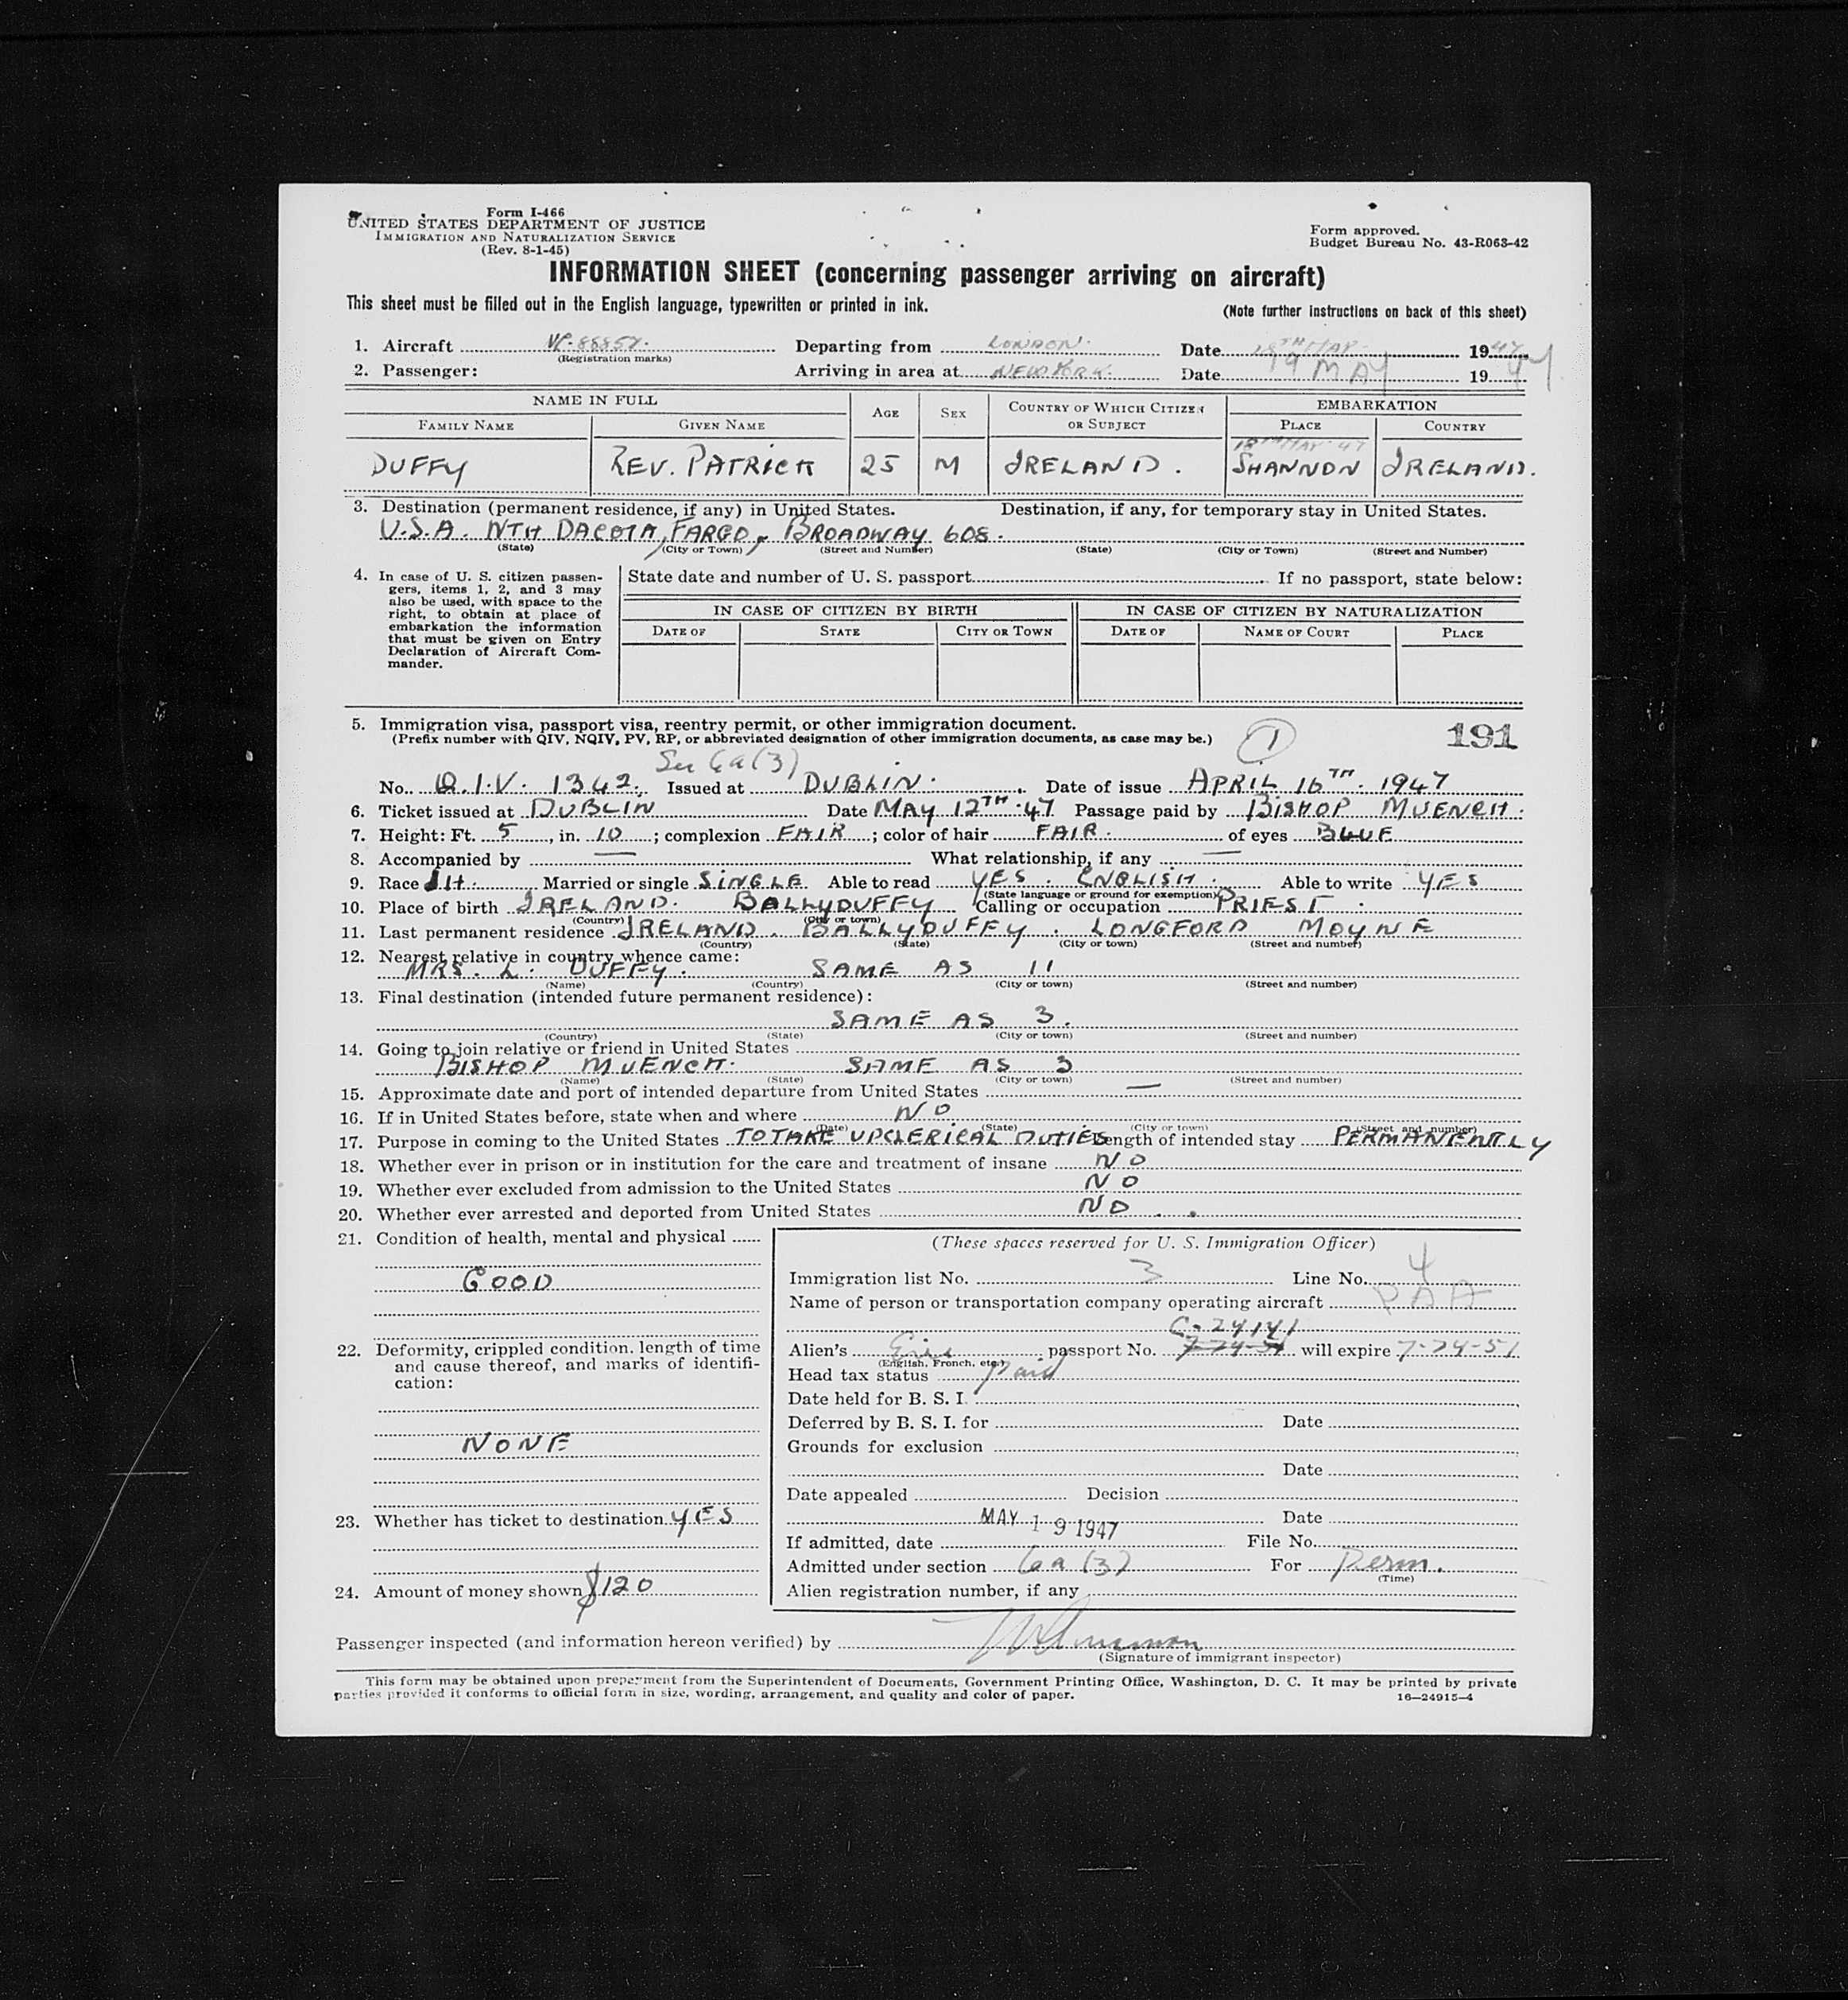 Form I-466
UNITED STATES DEPARTMENT OF JUSTICE
IMMIGRATION AND NATURALIZATION SERVICE
(Rev. 8-1-45)
Form approved.
Budget Bureau No. 43-R063-42
INFORMATION SHEET (concerning passenger arriving on aircraft)
This sheet must be filled out in the English language, typewritten or printed in ink.
(Note further instructions on back of this sheet)
1. Aircraft Departing from LONDON. Date 18TH MAY 1947
(Registration marks)
2. Passenger: Arriving in area at NEW YORK. Date 19 MAY 1947
NAME IN FULL AGE SEX COUNTRY OF WHICH CITIZEN OR SUBJECT EMBARKATION
FAMILY NAME GIVEN NAME PLACE COUNTRY
18TH MAY 47
DUFFY REV. PATRICK 25 M IRELAND. SHANNON IRELAND.
3. Destination (permanent residence, if any) in United States. Destination, if any, for temporary stay in United States.
U.S.A. NTH DACOTA, FARGO, BROADWAY 608.
(State) (City or Town) (Street and Number) (State) (City or Town) (Street and Number)
4. In case of U. S. citizen passen-
gers, items 1, 2, and 3 may
also be used, with space to the
right, to obtain at place of
embarkation the information
that must be given on Entry
Declaration of Aircraft Com-
mander.
State date and number of U. S. passport If no passport, state below:
IN CASE OF CITIZEN BY BIRTH IN CASE OF CITIZEN BY NATURALIZATION
DATE OF STATE CITY OR TOWN DATE OF NAME OF COURT PLACE
5. Immigration visa, passport visa, reentry permit, or other immigration document.
(Prefix number with QIV, NQIV, PV, RP, or abbreviated designation of other immigration documents, as case may be.)
1
191
6a(3)
No. Q.I.V. 1342. Issued at DUBLIN. Date of issue APRIL 16TH. 1947
6. Ticket issued at DUBLIN Date MAY 12TH.47 Passage paid by BISHOP MUENCH.
7. Height: Ft. 5, in. 10; complexion FAIR; color of hair FAIR. of eyes BLUE
8. Accompanied by — What relationship, if any —
9. Race Married or single SINGLE Able to read YES. ENGLISH. Able to write YES
(State language or ground for exemption)
10. Place of birth IRELAND. BALLYDUFFY Calling or occupation PRIEST.
(Country) (City or town)
11. Last permanent residence IRELAND. BALLYDUFFY. LONGFORD MOYNE
(Country) (State) (City or town) (Street and number)
12. Nearest relative in country whence came:
MRS. L. DUFFY. SAME AS 11
(Name) (Country) (City or town) (Street and number)
13. Final destination (intended future permanent residence):
SAME AS 3.
(Country) (State) (City or town) (Street and number)
14. Going to join relative or friend in United States
BISHOP MUENCH. SAME AS 3
(Name) (State) (City or town) (Street and number)
15. Approximate date and port of intended departure from United States —
16. If in United States before, state when and where NO
(Date) (State) (City or town) (Street and number)
17. Purpose in coming to the United States TO TAKE UP CLERICAL DUTIES Length of intended stay PERMANENTLY
18. Whether ever in prison or in institution for the care and treatment of insane NO
19. Whether ever excluded from admission to the United States NO
20. Whether ever arrested and deported from United States NO
21. Condition of health, mental and physical
GOOD
22. Deformity, crippled condition. length of time
and cause thereof, and marks of identifi-
cation:
NONE
23. Whether has ticket to destination YES
24. Amount of money shown $120
(These spaces reserved for U. S. Immigration Officer)
Immigration list No. 3 Line No. 4
Name of person or transportation company operating aircraft PAA
C-24141
Alien's Eire passport No. 7-24-51 will expire 7-24-51
(English, French, etc.)
Head tax status Paid
Date held for B. S. I.
Deferred by B. S. I. for Date
Grounds for exclusion
Date
Date appealed Decision
Date
MAY 19 1947
If admitted, date File No.
Admitted under section 6a(3) For Perm.
(Time)
Alien registration number, if any
Passenger inspected (and information hereon verified) by
(Signature of immigrant inspector)
This form may be obtained upon prepayment from the Superintendent of Documents, Government Printing Office, Washington, D. C. It may be printed by private
parties provided it conforms to official form in size, wording, arrangement, and quality and color of paper.
16—24915-4